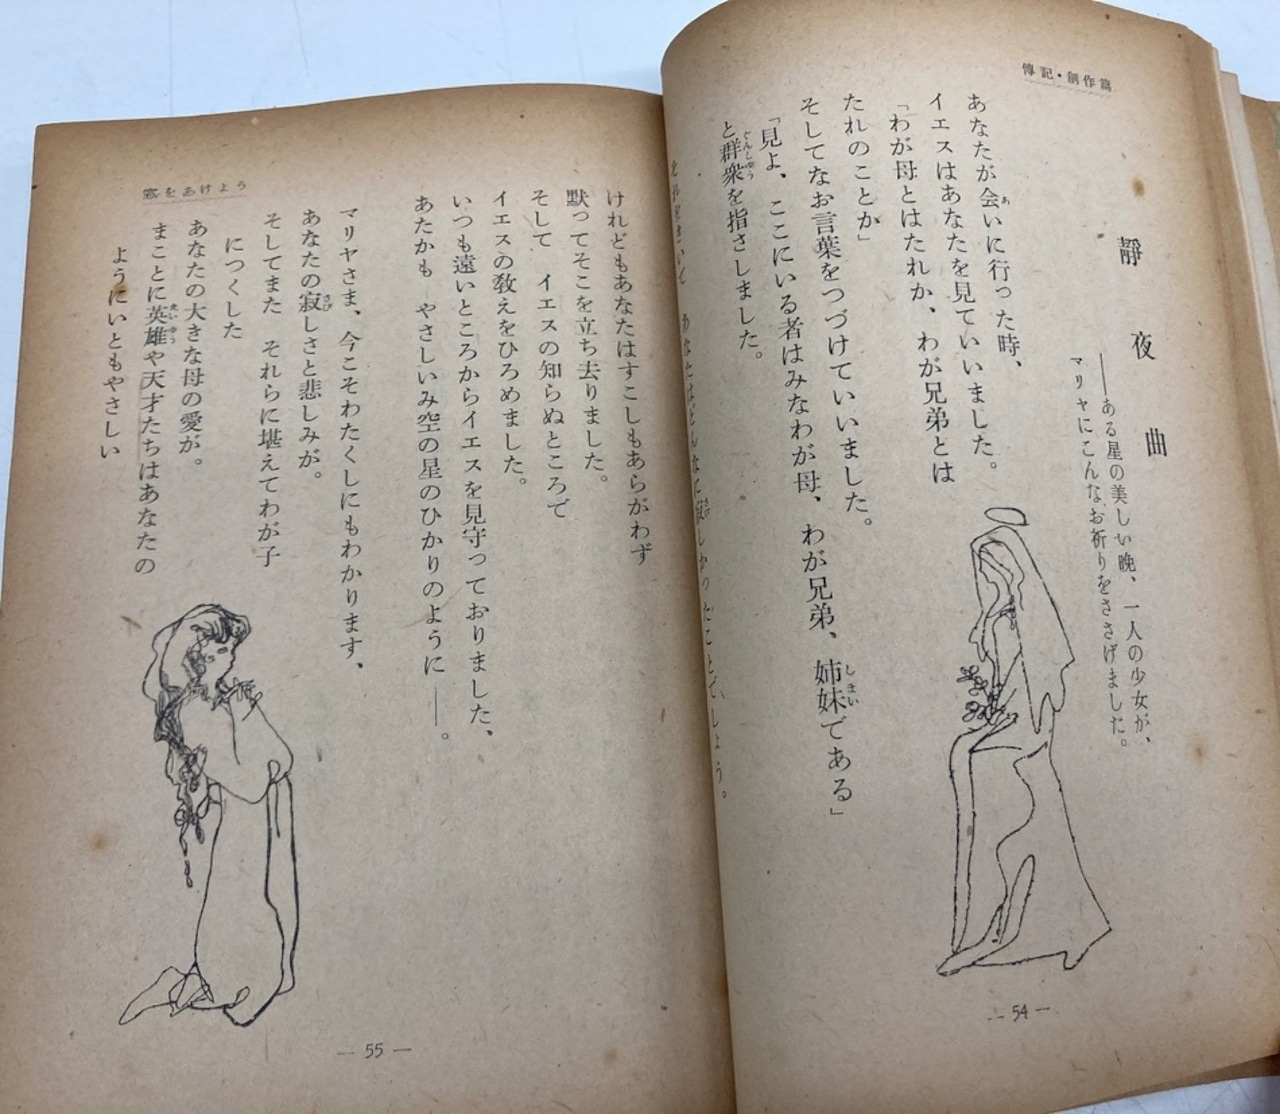 傳記・創作篇
靜夜曲
――ある星の美しい晩、一人の少女が、
マリヤにこんなお祈りをささげました。
あなたが会いに行った時、
イエスはあなたを見ていいました。
「わが母とはたれか、わが兄弟とは
たれのことか」
そしてなお言葉をつづけていいました。
「見よ、ここにいる者はみなわが母、わが兄弟、姉妹である」
と群衆を指さしました。
それをきいて あなたはどんなに寂しかったことでしょう。
― 54 ―
けれどもあなたはすこしもあらがわず
默ってそこを立ち去りました。
そして イエスの知らぬところで
イエスの敎えをひろめました。
いつも遠いところからイエスを見守っておりました、
あたかも やさしいみ空の星のひかりのように――。
マリヤさま、今こそわたくしにもわかります、
あなたの寂しさと悲しみが。
そしてまた それらに堪えてわが子
につくした
あなたの大きな母の愛が。
まことに英雄や天才たちはあなたの
ようにいともやさしい
窓をあけよう
― 55 ―